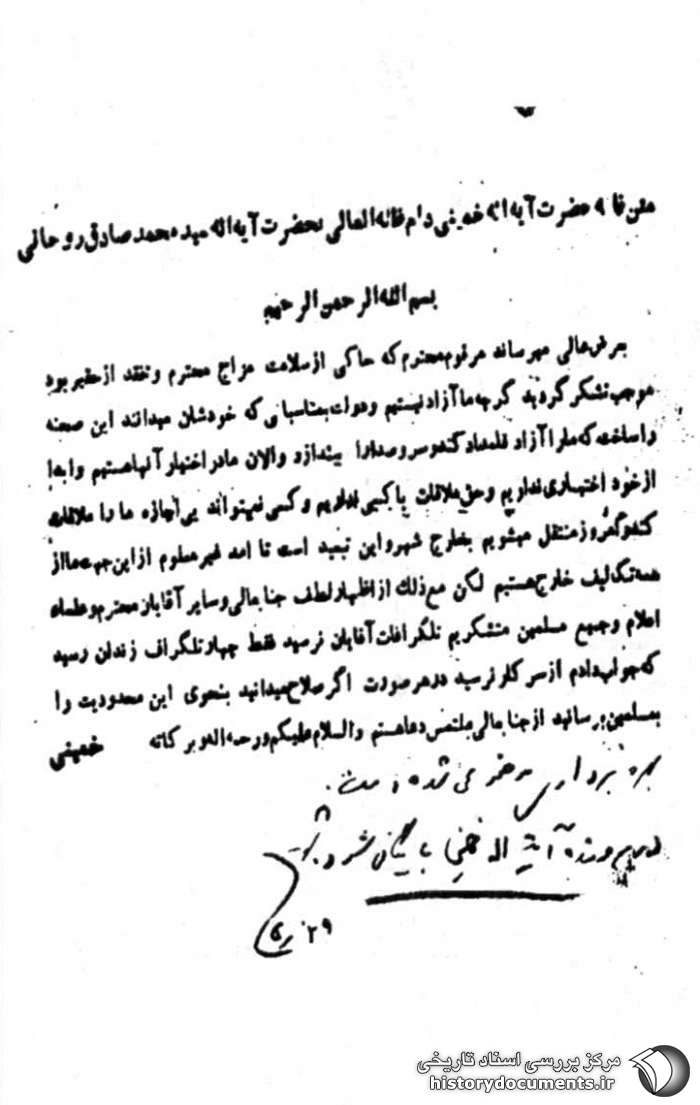 متن نامه حضرت آیه اله خمینی دام ظله العالی بحضرت آیه اله سیدمحمد صادق روحانی
بسم الله الرحمن الرحیم
بعرض عالی میرساند مرقوم محترم که حاکی از سلامت مزاج محترم و تفقد از حقیر بود
موجب تشکر گردید گرچه ما آزاد نیستیم و دولت بمناسباتی که خودشان میدانند این صحنه
را ساخت که ما را آزاد قلمداد کند و سر و صدا را بیندازد و الان ما در اختیار آنها هستیم و ابدا
از خود اختیاری نداریم و حق ملاقات با کسی نداریم و کسی نمیتواند بی اجازه ما را ملاقات
کند و امروز منتقل میشویم بخارج شهر و این تبعید است تا امد غیر معلوم از این جهت ما از
همه تکلیف خارج هستیم لکن مع ذلك از اظهار لطف جنابعالی و سایر آقایان محترم و علماء
اعلام و جمیع مسلمین متشکریم تلگرافات آقایان نرسید فقط چهار تلگراف زندان رسید
که جواب دادم از سرکار نرسید در هر صورت اگر صلاح میدانید بنحوی این محدودیت را
بمسلمین برسانید از جنابعالی ملتمس دعا هستم والسلام علیکم ورحمه اله وبرکاته خمینی
بهره برداری شده است.
پرونده آیت اله خمینی بایگانی شود
۲۹
مرکز بررسی اسناد تاریخی
historydocuments.ir